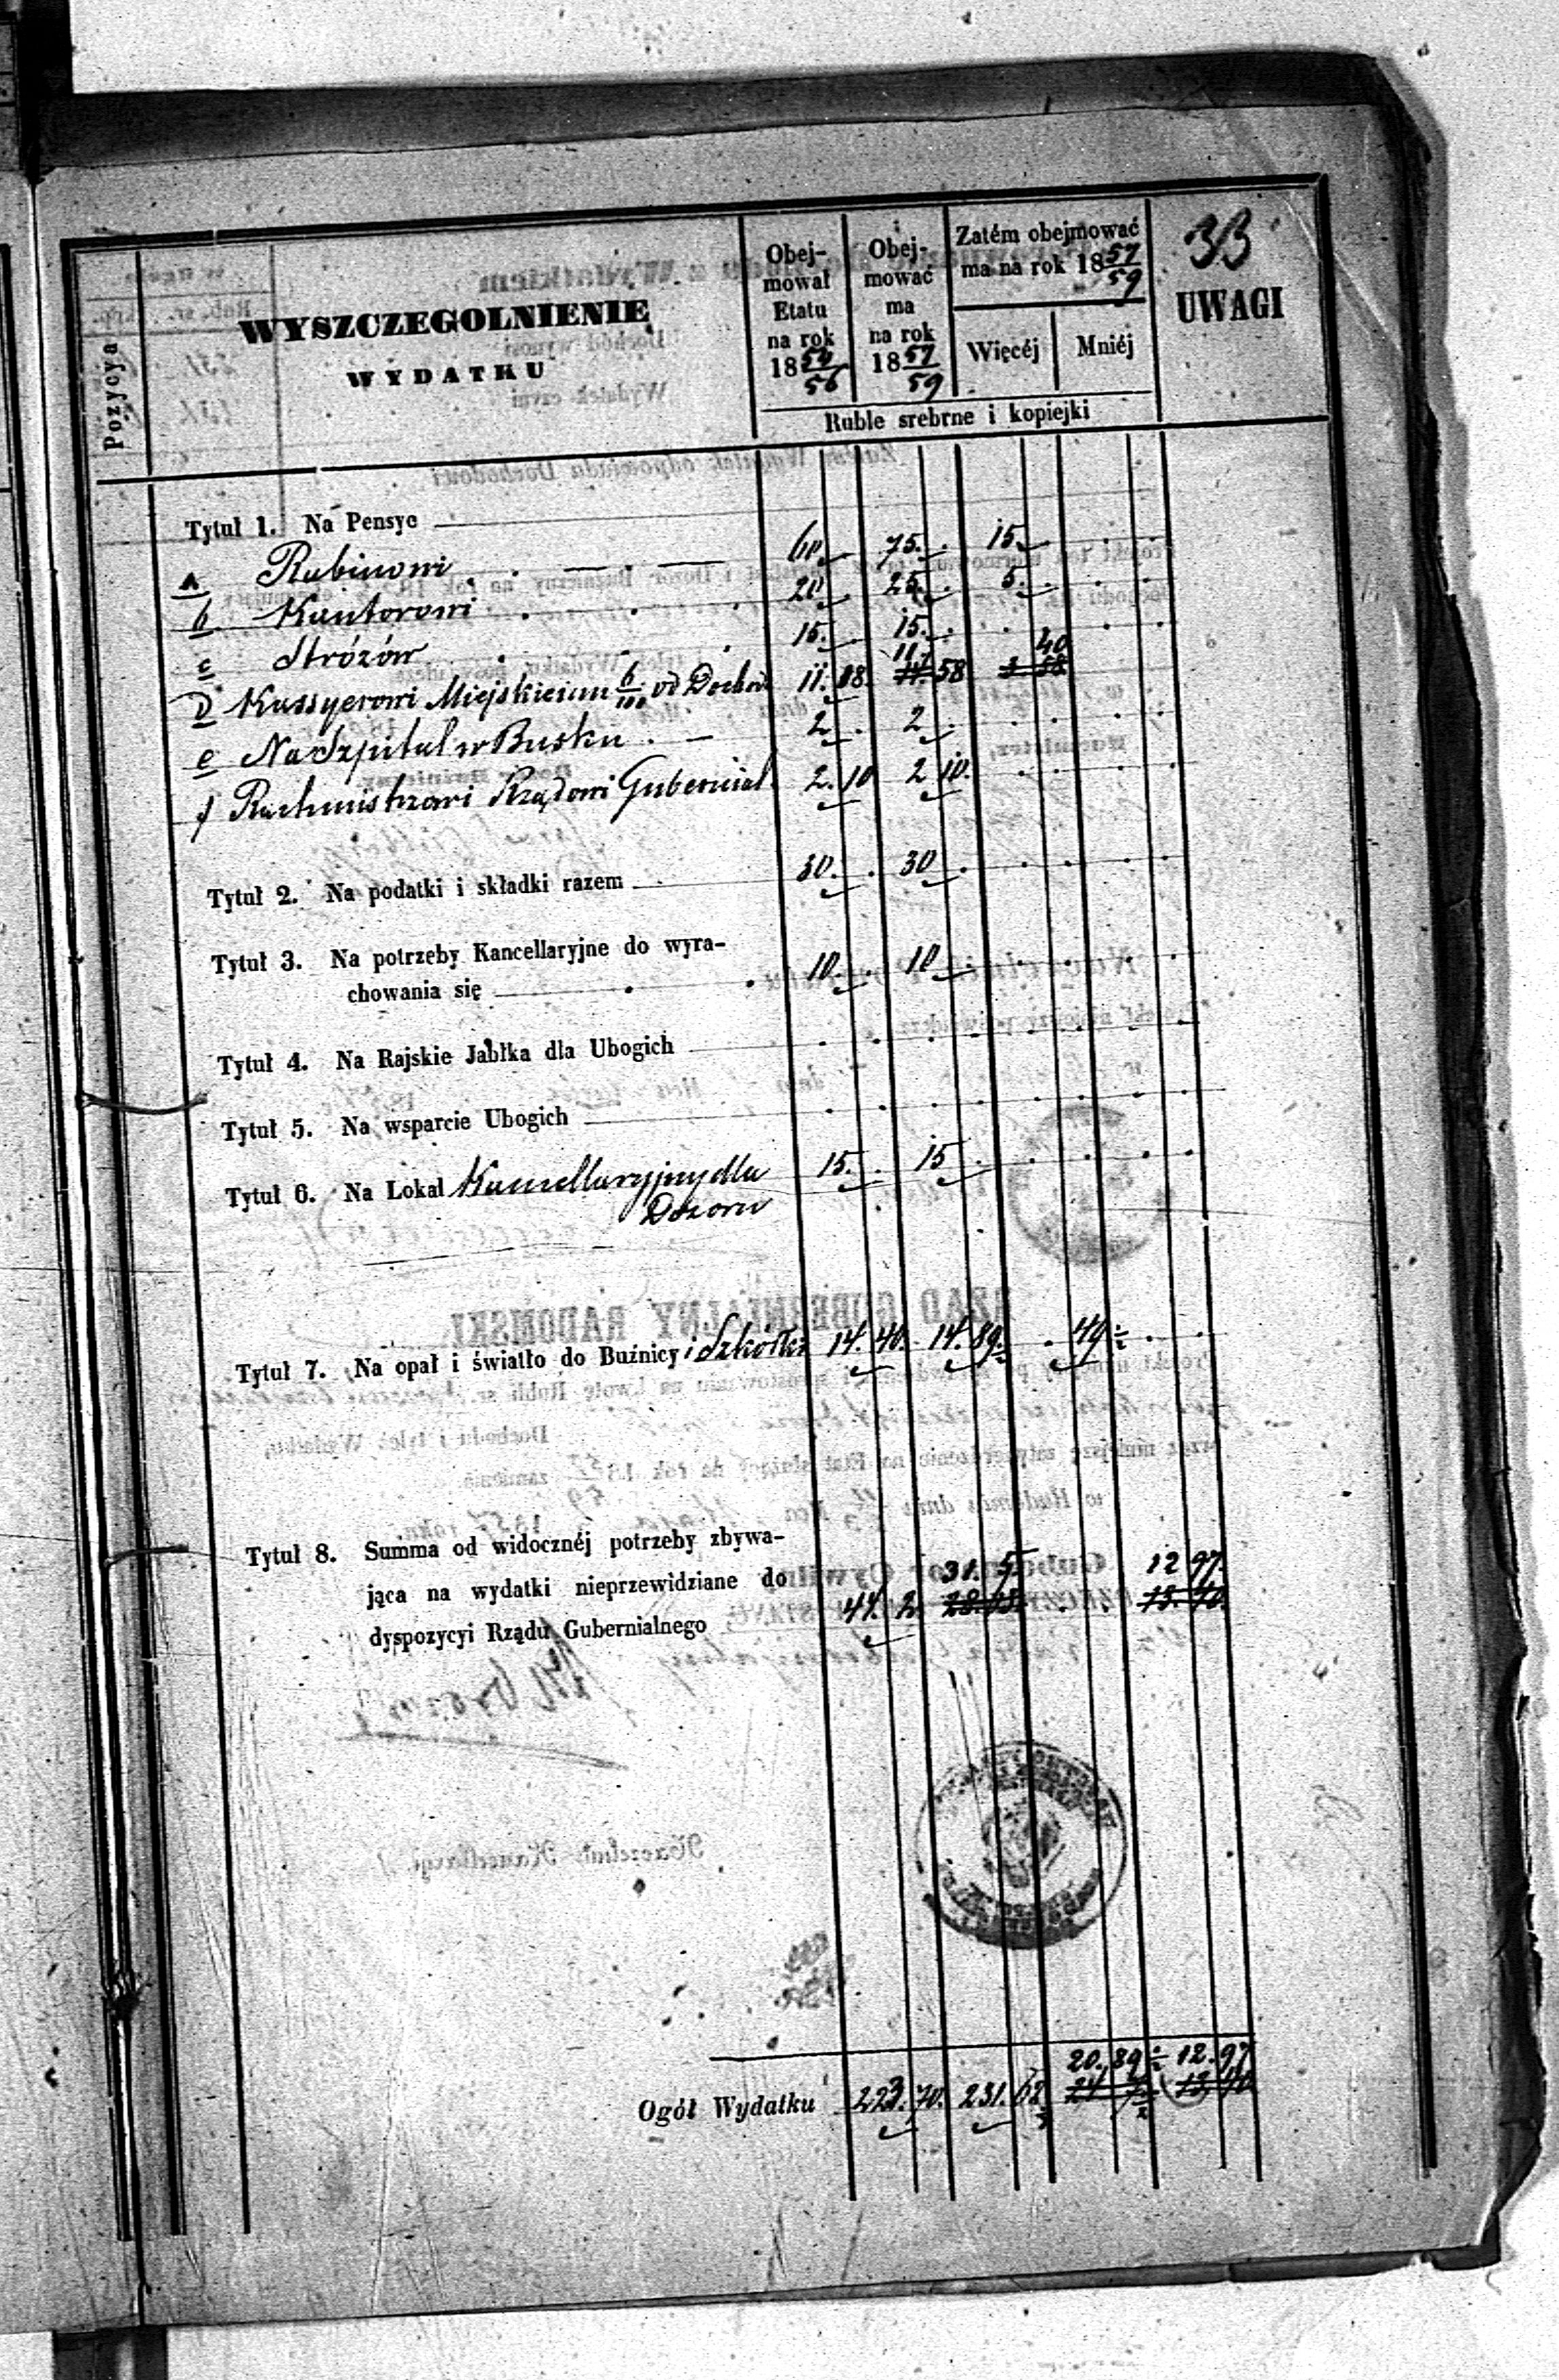 33
Pozycya
WYSZCZEGOLNIENIE
WYDATKU
Obej-
mował
Etatu
na rok
18 54/56
Obej-
mować
ma
na rok
18 57/59
Zatém obejmować
ma na rok 18 57/59
Więcéj
Mniéj
UWAGI
Ruble srebrne i kopiejki
Tytuł 1. Na Pensye
a Rabinowi 60. 75. 15.
b Kantorowi 20. 25. 5.
c Stróżów 15. 15.
D Kassyerowi Miejskiemu 6/100 od Dochod 11. 88. 11. 58 40
e Na Szpital w Busku 2. 2
f Rachmistrzowi Rządowi Gubernial 2. 10 2 10.
Tytuł 2. Na podatki i składki razem 30. 30
Tytuł 3. Na potrzeby Kancellaryjne do wyra-
chowania się 10. 10
Tytuł 4. Na Rajskie Jabłka dla Ubogich
Tytuł 5. Na wsparcie Ubogich
Tytuł 6. Na Lokal Kancellaryjny dla 15. 15
Dozoru
Tytuł 7. Na opał i światło do Buźnicy i Szkółki 14. 40. 14. 89. 49
Tytuł 8. Summa od widocznéj potrzeby zbywa-
jąca na wydatki nieprzewidziane do 31. 5. 12 97.
dyspozycyi Rządu Gubernialnego 44. 2. 28. 13. 40.
20. 89 12. 97
Ogół Wydatku 223. 70. 231. 62 13. 40